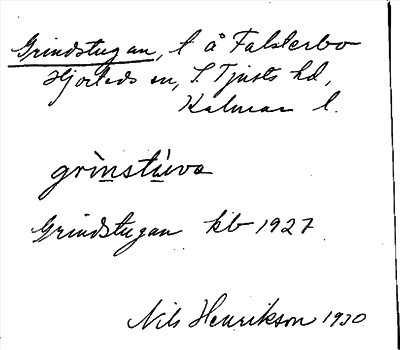 Grindstugan, t å Falsterbo
Hjorteds sn, S. Tjusts hd,
Kalmar l.
grìnstúva
Grindstugan kb 1927
Nils Henrikson 1930